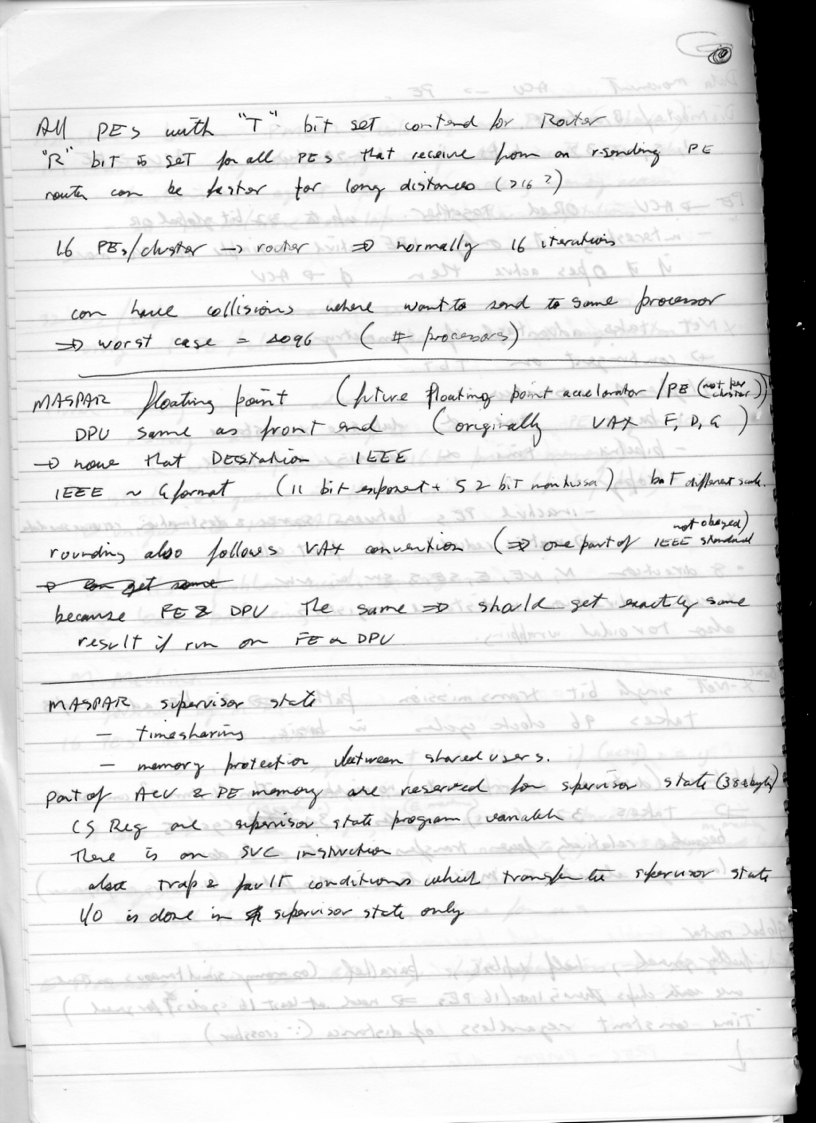 All PEs with "T" bit set contend for Router
"R" bit is set for all PEs that receive from an r-sending PE
router can be faster for long distances (>16?)
16 PEs/cluster → router ⇒ normally 16 iterations
can have collisions where want to send to same processor
⇒ worst case = 4096 (# processors)
MASPAR floating point (future floating point accelerator /PE (not per cluster))
DPU same as front end (originally VAX F, D, G)
→ now that DECstation IEEE
IEEE ~ G format (11 bit exponent + 52 bit mantissa) but different scale.
rounding also follows VAX convention (⇒ one part of IEEE standard not obeyed)
→ can get same
because FE & DPU the same ⇒ should get exactly same
result if run on FE or DPU
MASPAR supervisor state
- timesharing
- memory protection between shared users.
part of ACU & PE memory are reserved for supervisor state
CS Reg are supervisor state program variable
There is an SVC instruction
also trap & fault conditions which transfer to supervisor state
I/O is done in supervisor state only